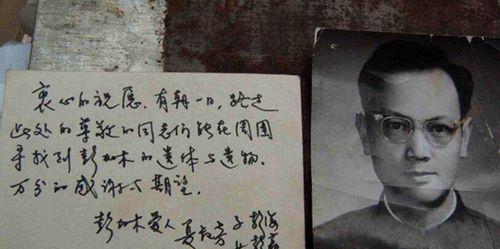 衷心的祝愿,有朝一日,路过
此处的尊敬的同志们能在周围
寻找到彭加木的遗体与遗物.
万分的感谢与期望.
彭加木爱人 夏叔芳 子 彭海
女 彭荔